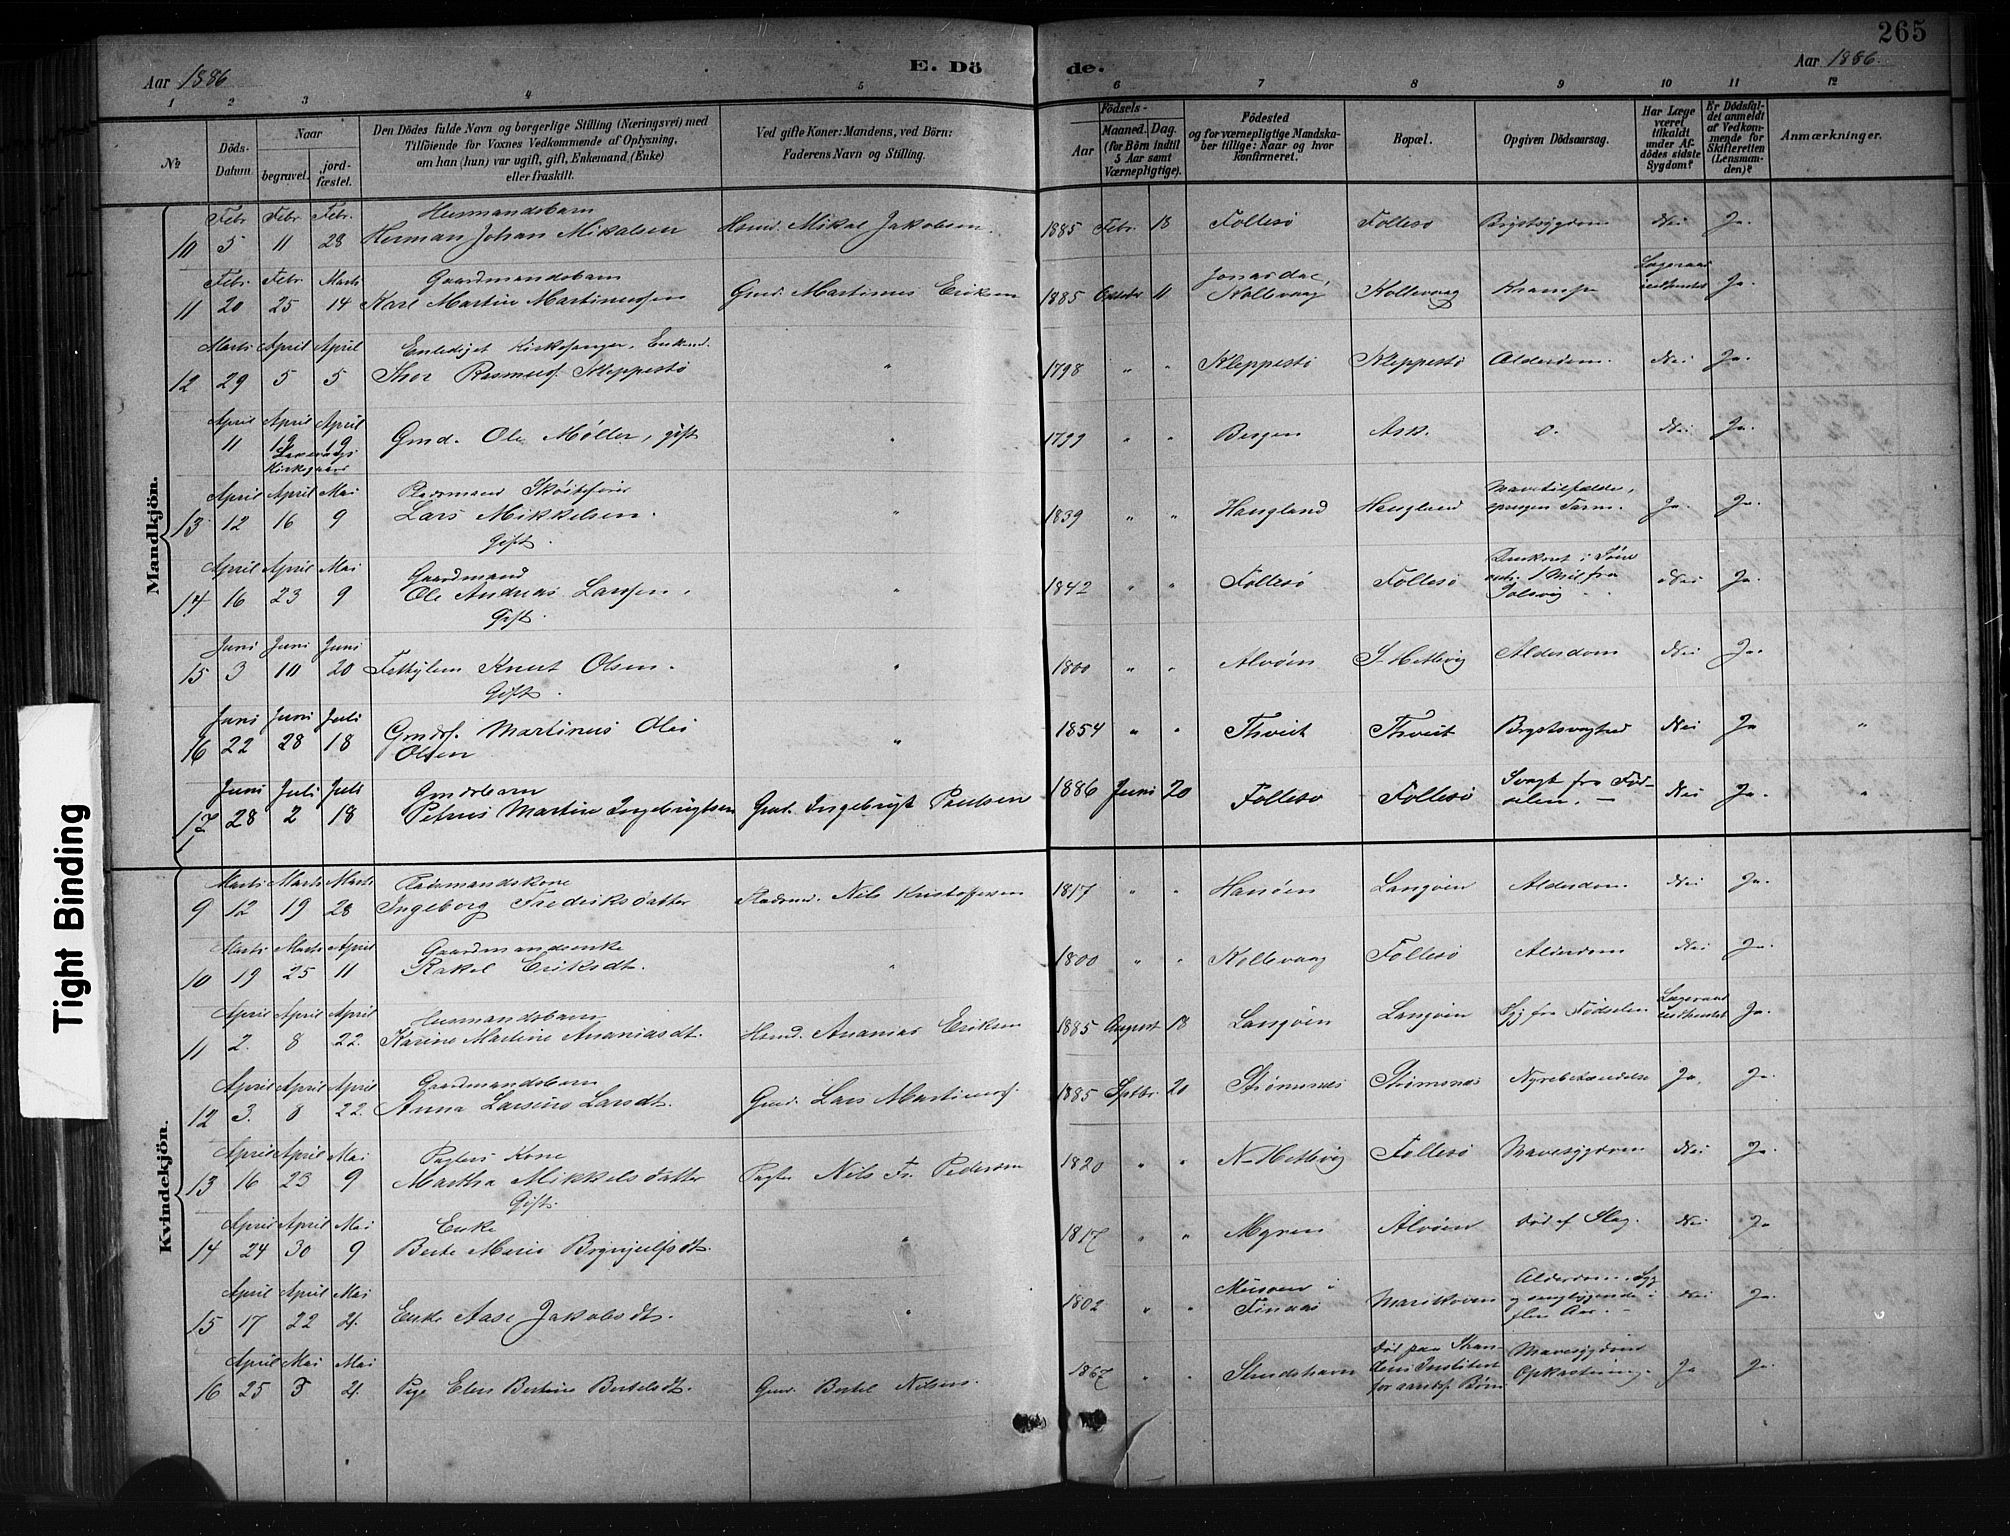 265
Aar 1886
E. Döde.
Aar 1886.
1 2 3 4 5 6 7 8 9 10 11 12
No
Döds-Datum.
Naar begravet. jord-fæstet.
Den Dödes fulde Navn og borgerlige Stilling (Næringsvei) med Tilföiende for Voxnes Vedkommende af Oplysning, om han (hun) var ugift, gift, Enkemand, (Enke) eller fraskilt.
Ved gifte Koner: Mandens, ved Börn: Faderens Navn og Stilling.
Födsels- Aar Maaned. Dag. (for Börn indtil 5 Aar samt Værnepligtige).
Födested og for værnepligtige Mandska-ber tillige: Naar og hvor konfirmeret.
Bopæl.
Opgiven Dödsaarsag.
Har Læge været tilkaldt under Af-dödes sidste Sygdom?
Er Dödsfal-det anmeldt af Vedkom-mende for Skifteretten (Lensman-den)?
Anmærkninger.
Mandkjön.
Febr. Febr. Febr. Husmandsbarn
10 5 11 28 Herman Johan Mikalsen Hsmd. Mikal Jakobsen. 1885 Febr. 18 Follesö Follesö Brystsygdom Nei Ja.
Febr. Febr. Marts Gaardmandsbarn
11 20 25 14 Karl Martin Martinussen Gmd. Martinus Eriksen 1885 Oktober 11 Kollevaag Kollevaag Krampe Ja.
Marts April April Entlediget Kirkesanger, Enkmd.
12 29 5 5 Thor Rasmus. Kleppestö " 1798 " " Kleppestö Kleppestö Alderdom. Nei Ja.
April April April
11 19 19 Gmd. Ole Møller, gift " 1799 " " Bergen Ask. o. Nei Ja.
Kirkegaard
April April Mai Pladsmand
13 12 16 9 Lars Mikkelsen. " 1839 " " Haugland Haugland Ja. Ja.
Gift.
April April Mai Gaardmand
14 16 23 9 Ole Andreas Larssen, " 1842 " " Follesö Follesö 1 Mil fra Nei Ja.
Gift.
Juni Juni Juni
15 3 10 20 Knut Olsen. " 1800 " " Alvøen S-Hetlevig Alderdom Nei Ja.
Gift.
Juni Juni Juli
16 22 28 18 Gmds. Martinus Olai Olsen " 1854 " " Thveit Thveit Brystsvaghed Nei Ja "
Juni Juli Juli Gmdsbarn
17 28 2 18 Petrus Martin Ingebrigtsen Gmd. Ingebrigt Paulsen 1886 Juni 20 Follesø Follesö Svagt fra Fød-selen. Nei Ja. "
Kvindekjön.
Marts Marts Marts Pladsmandskone
9 12 19 28 Ingeborg Frederiksdatter Pladsmd. Nils Kristoffersen 1817 " " Hanöen Langøen Alderdom Nei Ja.
Marts Marts April Gaardmandsenke
10 19 25 11 Rakel Eriksdt. " 1800 " " Kollevaag Follesö Alderdom Nei Ja.
April April April Husmandsbarn
11 2. 8 22. Karine Martine Ananiasdt. Hsmd. Ananias Eriksen 1885 August 18 Langøen Langøen Syg fra Fødselen Ja.
April April April Gaardmandsbarn
12 3. 8 22. Anna Larsine Larsdt. Gmd. Lars Martinus. 1885 Sptbr. 20 Strømsnæs Strømsnæs Nyrebetændelse Ja. Ja.
April April Mai Pagters Kone
13 16 23 9 Martha Mikkelsdatter Pagter Nils Fr. Pedersen 1820 " " N-Hetlevig Follesö Mavesygdom Nei Ja.
Gift.
April April Mai Enke
14 24 30 9 Berte Marie Brynjulfsdt. " 1817 " " Myren Alvøen Død af Slag. Nei Ja
April April Mai
15 17 22 21. Enke Aase Jakobsdt. " 1802 " " Findaas Alderdom. Syg og sengliggende i flere Aar. Nei Ja.
April Mai Mai
16 25 3 21. Pige Elen Bertine Bertelsdt. Gmd. Bertel Nilsen. 1867 " " Strudshavn Død paa for aandsf. Børn Mavesygdom Opkastning. Ja Ja.
Tight Binding